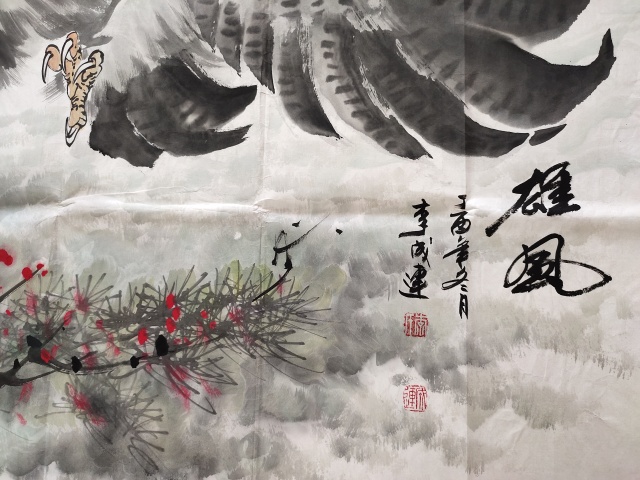 雄風
丁酉年冬月
李成連